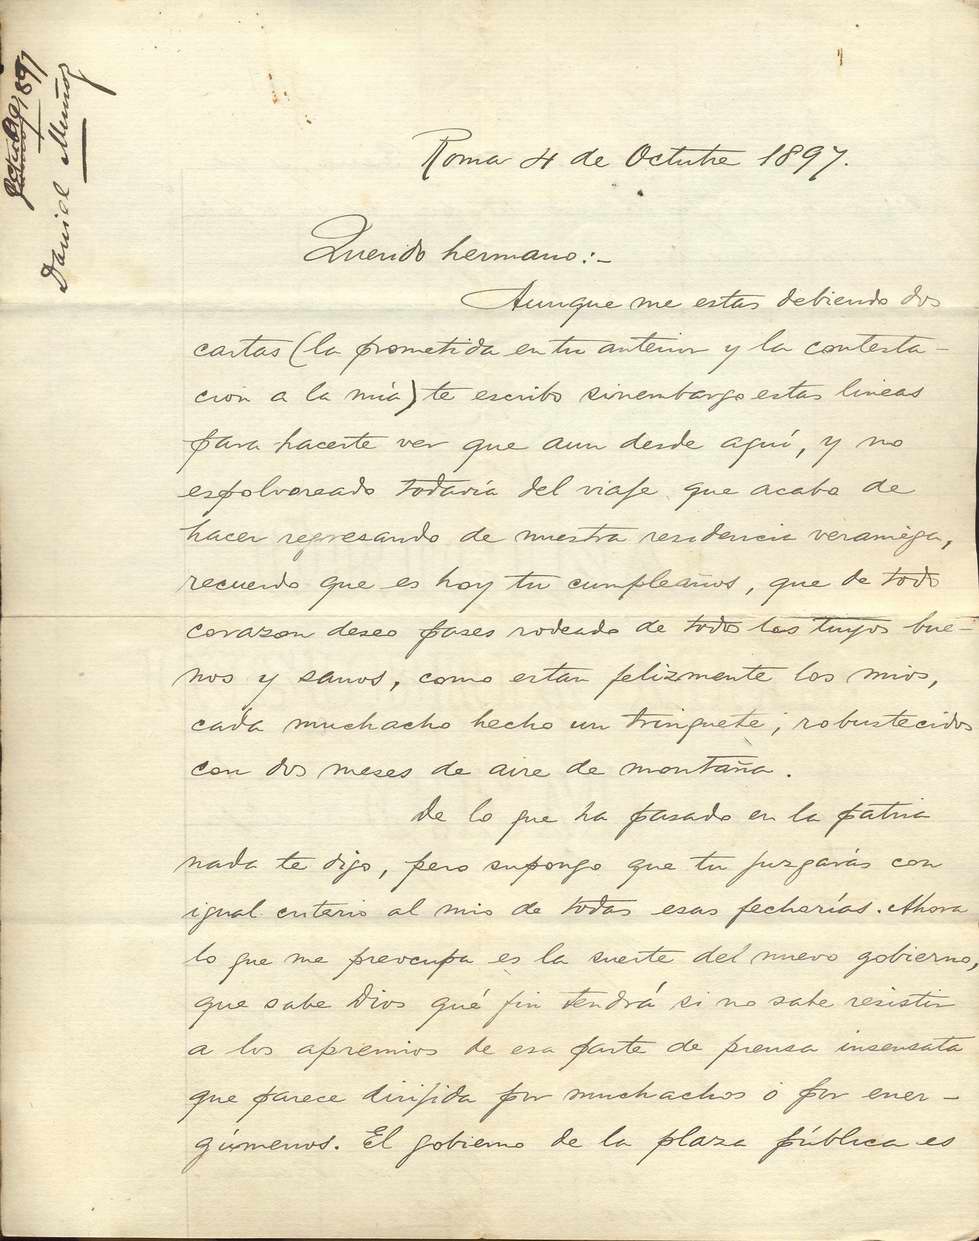 Octubre 4/1897
Daniel Muñoz
Roma 4 de Octubre 1897.
Querido hermano:-
Aunque me estas debiendo dos
cartas (la prometida en tu anterior y la contesta-
cion a la mía) te escribo sinembargo estas lineas
para hacerte ver que aun desde aquí, y no
espolvoreado todavía del viaje que acabo de
hacer regresando de nuestra residencia veraniega,
recuerdo que es hoy tu cumpleaños, que de todo
corazon deseo pases rodeado de todos los tuyos bue-
nos y sanos, como estan felizmente los mios,
cada muchacho hecho un trinquete, robustecidos
con dos meses de aire de montaña.
De lo que ha pasado en la patria
nada te digo, pero supongo que tu juzgarás con
igual criterio al mio de todas esas fechorías. Ahora
lo que me preocupa es la suerte del nuevo gobierno,
que sabe Dios qué fin tendrá si no sabe resistir
a los apremios de esa parte de prensa insensata
que parece dirijida por muchachos ó por ener-
gúmenos. El gobierno de la plaza pública es